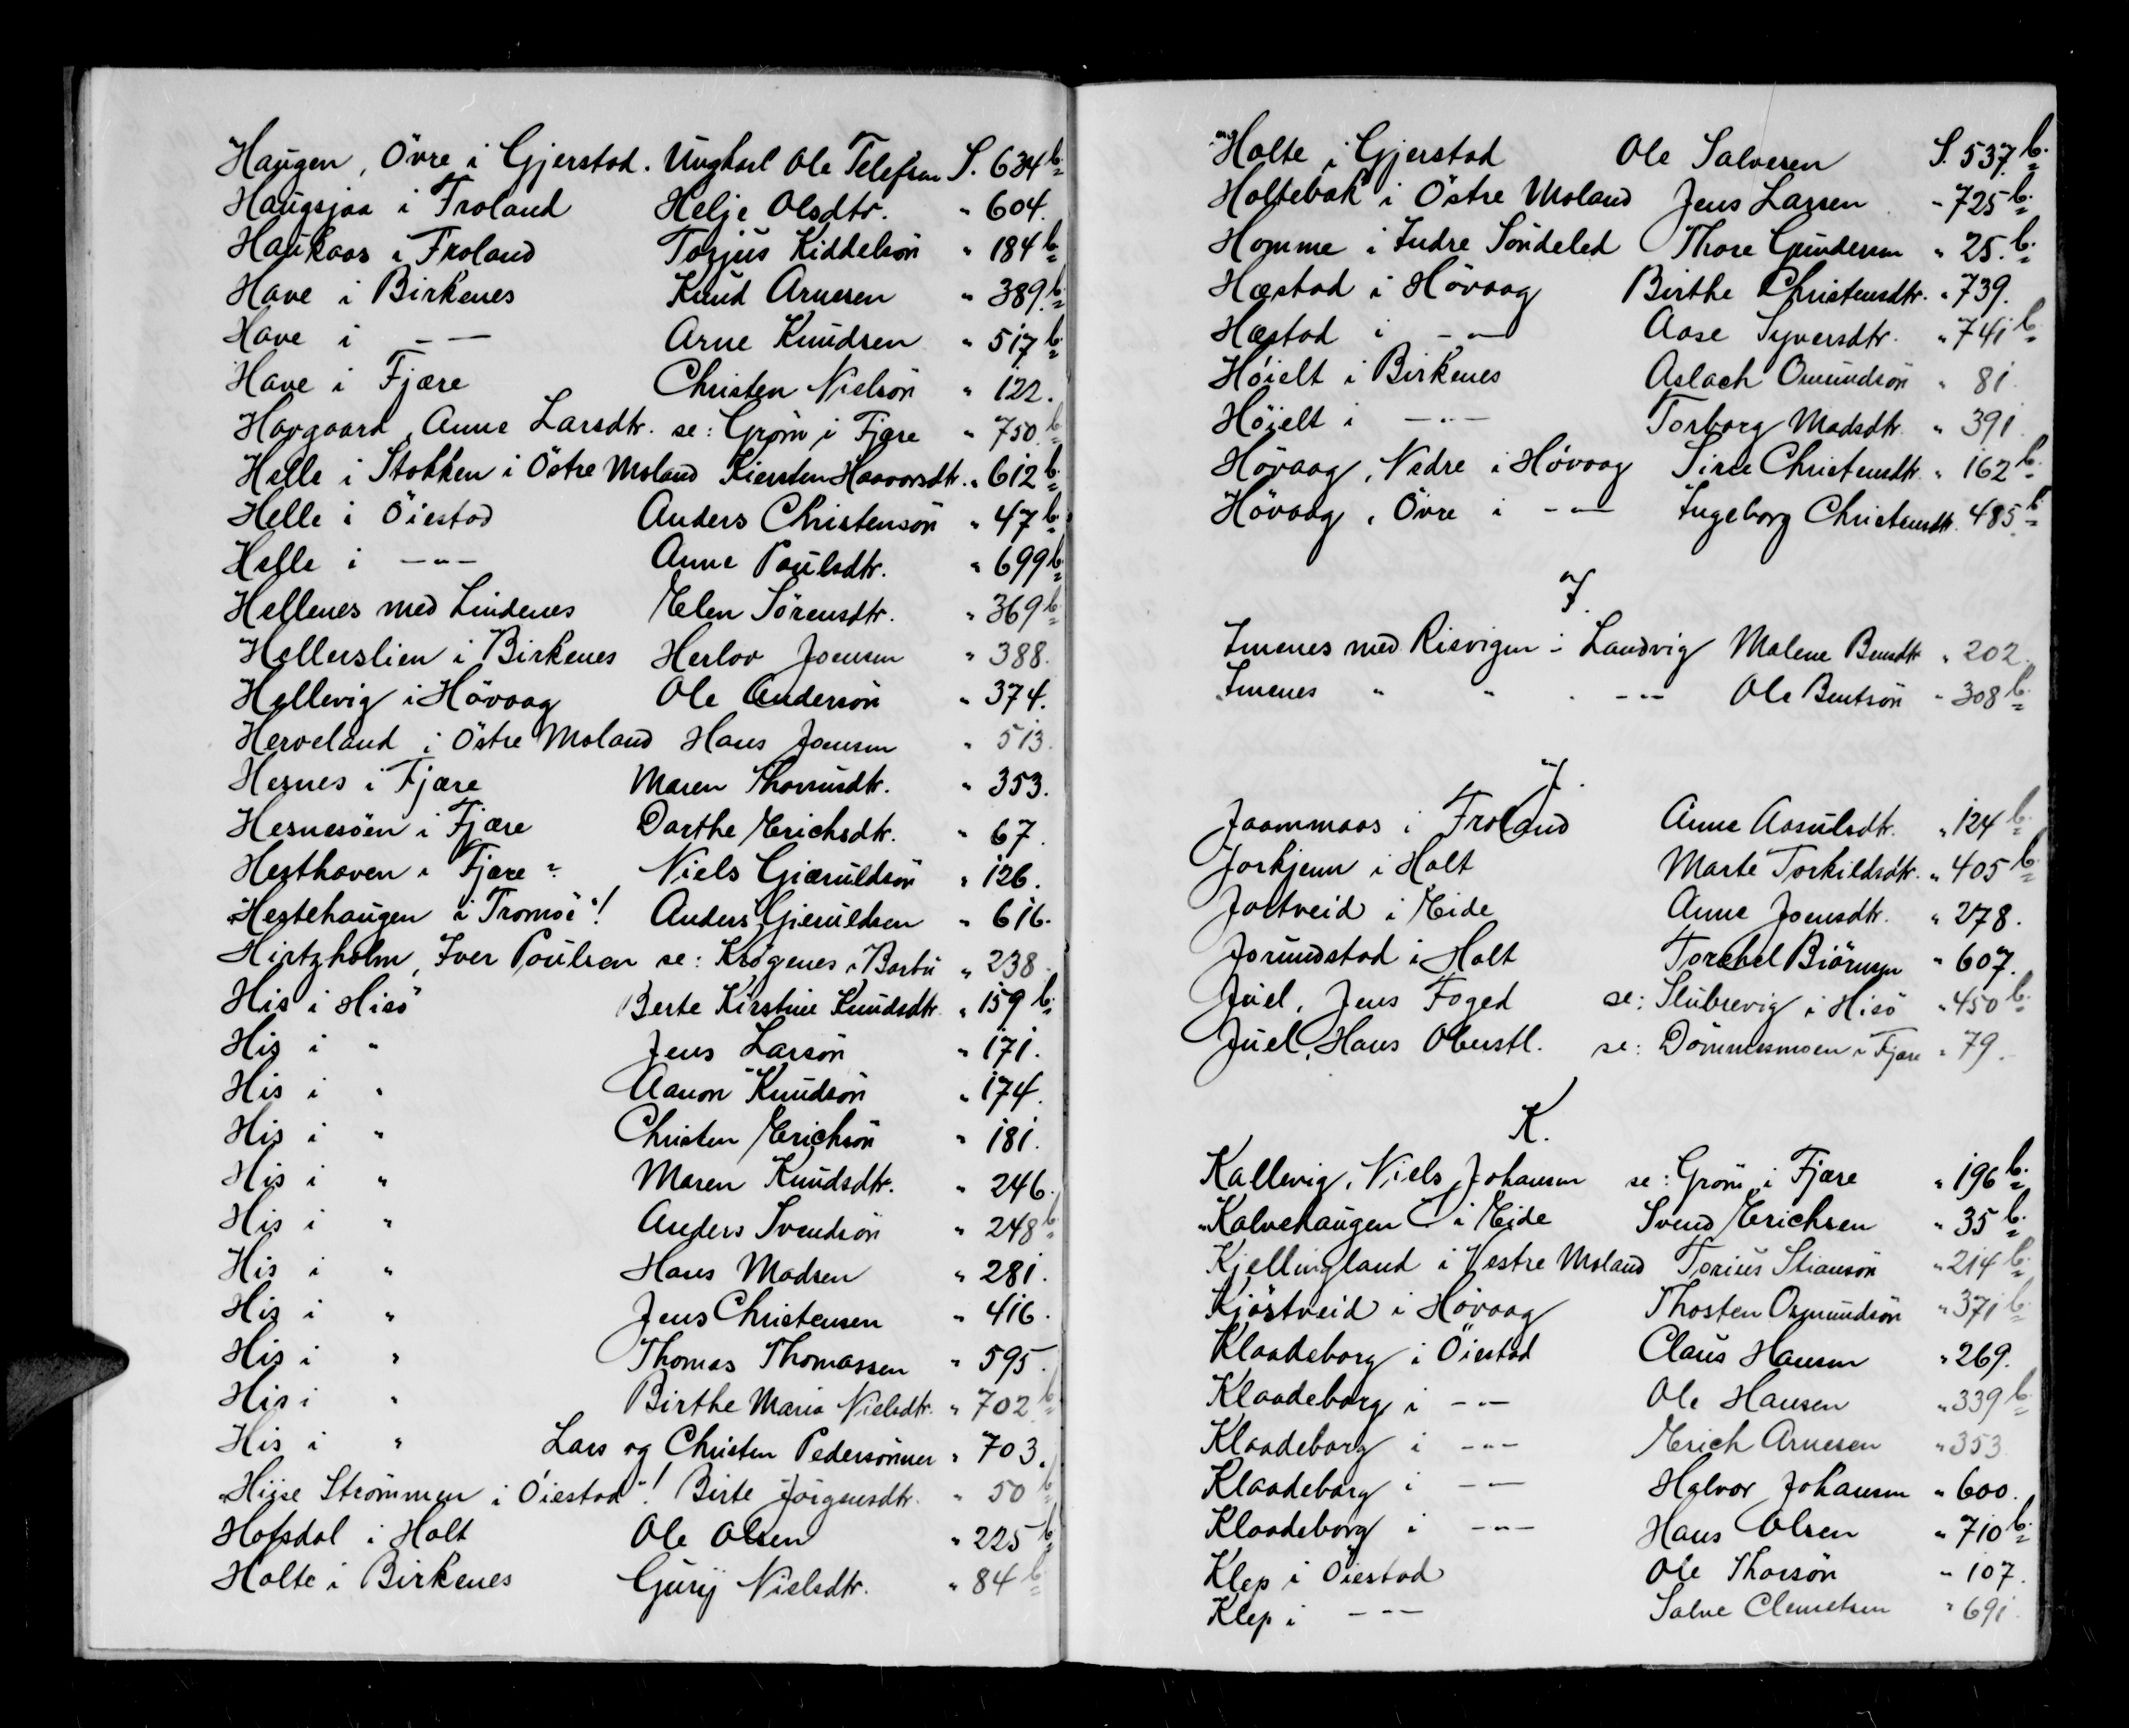 Haugen, Övre i Gjerstad. Ungkarl Ole Telefsen S. 634 b.
Haugsjaa i Froland Helje Olsdtr. " 604.
Haukaas i Froland Torjus Kiddelsön " 184 b.
Have i Birkenes Knud Arnesen " 389. b.
Have i — — Arne Knudsen " 517 b.
Have i Fjære Christen Nielsön " 122.
Havgaard, Anne Larsdtr. se: Grøm i Fjære " 750. b.
Helle i Stokken i Östre Moland Kiersten Haavorsdtr. " 612 b.
Helle i Öiestad Anders Christensön " 47 b.
Helle i — " — Anne Poulsdtr. " 699 b.
Hellenes med Lindenes Elen Sörensdtr. " 369 b.
Hellerslien i Birkenes Herlov Joensen " 388.
Hellevig i Hövaag Ole Andersön " 374.
Herveland i Östre Moland Hans Joensen " 513.
Hesnes i Fjære Maren Thorsensdtr. " 353.
Hesnesöen i Fjære Dorthe Erichsdtr. " 67.
Hesthaven i Fjære ? Niels Gieruldsön " 126.
"Hestehaugen i Tromöe"! Anders Gieruldsen " 616.
Hirtzholm, Iver Poulsen se: Krögenes i Barbu " 238.
His i Hisö Berte Kirstine Knudsdtr. " 159 b.
His i " Jens Larsön " 171.
His i " Aanon Knudsön " 174.
His i " Christen Erichsön " 181.
His i " Maren Knudsdtr. " 246.
His i " Anders Svendsön " 248 b.
His i " Hans Madsen " 281.
His i " Jens Christensen " 416.
His i " Thomas Thomassen " 595.
His i " Birthe Maria Nielsdtr. " 702. b.
His i " Lars og Christen Pedersönner " 703.
"Hijse Strömmen i Öiestad"! Birte Jörgensdtr. " 50 b.
Hofsdal i Holt Ole Olsen " 225 b.
Holte i Birkenes Gurij Nielsdtr. " 84 b.
Holte i Gjerstad Ole Salvesen S. 537. b.
Holtebak i Östre Moland Jens Larsen " 725 b.
Homme i Indre Söndeled Thore Gundersen " 25. b.
Hæstad i Hövaag Birthe Christensdtr. " 739.
Hæstad i — " — Aase Syversdtr. " 741 b.
Höielt i Birkenes Aslach Omundsön " 81.
Höielt i — " — Torborg Madsdtr. " 391.
Hövaag, Nedre i Hövaag Sire Christensdtr. " 162 b.
Hövaag, Övre i — " — Ingeborg Christensdtr. 485 b.
I.
Imenes med Risvigen i Landvig Malene Bensdtr " 202.
Imenes " " . — " — Ole Bentsön " 308 b.
J.
Jaammaas i Froland Anne Aasulsdtr. " 124 b.
Jorkjenn i Holt Marte Torkildsdtr. " 405 b.
Jortveid i Eide Anne Joensdtr. " 278.
Jorundstad i Holt Torchel Biörnsen " 607.
Juel, Jens Foged se: Slubrevig i Hisö " 450 b.
Juel, Hans Oberstl. se: Dömmesmoen i Fjære " 79.
K.
Kallevig, Niels Johansen se: Grøm i Fjære " 196 b.
"Kalvehaugen i Eide Svend Erichsen " 35 b.
Kjellingland i Vestre Moland Torius Stiansön " 214 b.
Kjöstveid i Hövaag Thosten Osmundsön " 371 b.
Klaadeborg i Öiestad Claus Hansen " 269.
Klaadeborg i — " — Ole Hansen " 339 b.
Klaadeborg i — " — Erich Arnesen " 353
Klaadeborg i — " — Halvor Johansen " 600.
Klaadeborg i — " — Hans Olsen " 710 b.
Klep i Öiestad Ole Thorsön " 107.
Klep i — " — Salve Clemetsen " 691.